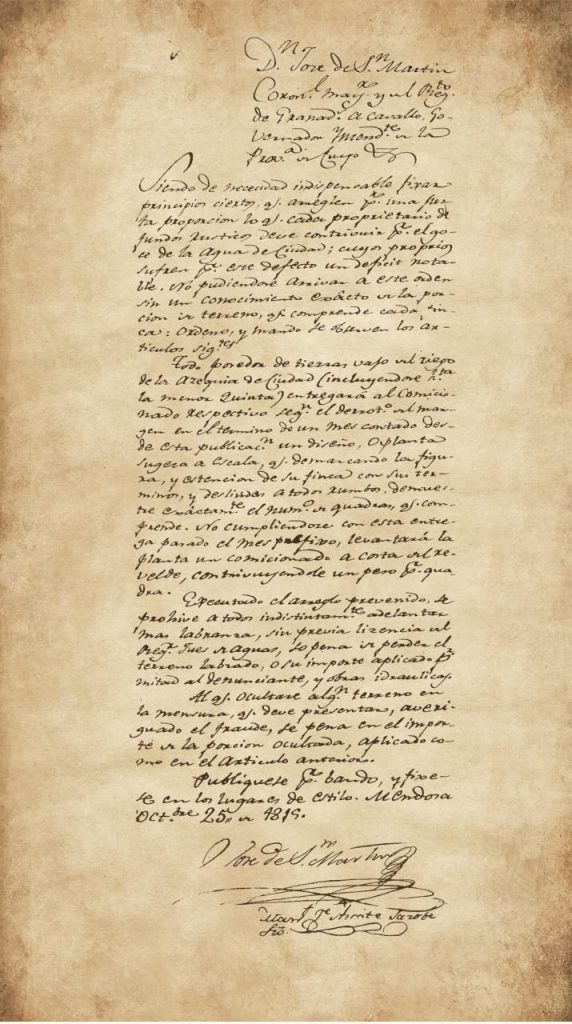 D.n Jose de S.n Martin
Coron.l may.r y del Reg.to
de Granad.s a Cavallo, Go-
vernador Intend.te de la
Prov.a de Cuyo
Siendo de necesidad indispensable fixar
principios ciertos, q.e arreglen p.r una jus-
ta proporcion lo q.e cada proprietario de
fundos rusticos deve contribuir p.r el go-
se de la Agua de Ciudad; cuyos proprios
sufren p.r este defecto un deficit nota-
ble. No pudiendose arrivar a este orden
sin un conocimiento exàcto de la por-
cion de terreno, q.e comprende cada fin-
ca: Ordeno, y mando se observen los Ar-
ticulos sig.tes
Todo poseedor de tierras vajo del riego
de la Azequia de Ciudad (incluyendose h.ta
la menor Quinta) entregará al Comicio-
nado respectivo seg.n el derrot.o del mar-
gen en el termino de un mes contado des-
de esta publicac.n un diseño, o planta
sugeta a escala, q.e demarcando la figu-
ra, y estencion de su finca con sus ter-
minos, y deslindes a todos rumbos, demues-
tre exáctam.te el num.o de quadras, q.e com-
prende. No cumpliendose con esta entre-
ga pasado el mes prefixo, levantará la
planta un comicionado a costa del re-
velde, contribuyendole un peso p.r qua-
dra.
Executado el arreglo prevenido, se
prohive a todos indistintam.te adelantar
mas labranza, sin previa lizencia del
Reg.r Jues de Aguas, so pena de perder el
terreno labrado, o su importe aplicado p.r
mitad al denunciante, y obras idraulicas.
Al q.e ocultare alg.n terreno en
la mensura, q.e deve presentar, averi-
guado el fraude, se pena en el impor-
te de la porcion ocultada, aplicado co-
mo en el Articulo anterior.
Publiquese p.r bando, y fixe-
se en los lugares de estilo. Mendosa
Oct.bre 25,, de 1815.
Jose de S.n Martin